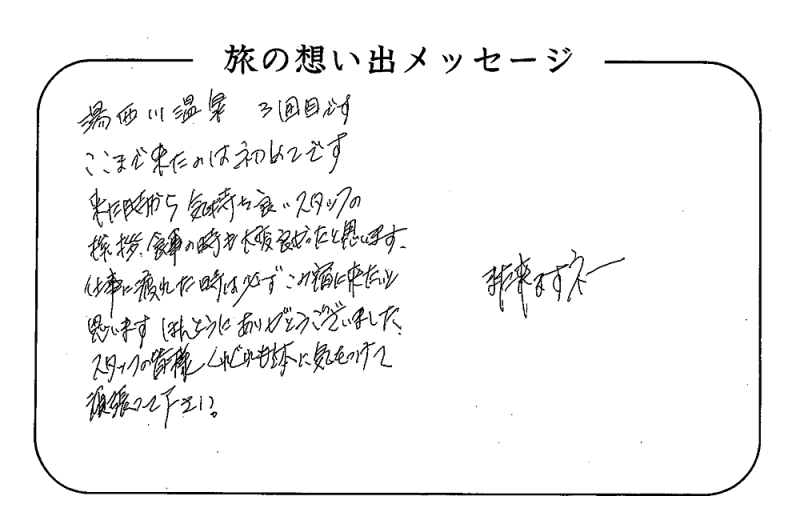 旅の想い出メッセージ
湯西川温泉 3回目です
ここまで来たのは初めてです
来た時から 気持ち良いスタッフの
挨拶、食事の時も大変良かったと思います、
仕事に疲れた時は必ずこの宿に来たいと
思います ほんとうにありがとうございました、
スタッフの皆様 くれぐれも体に気をつけて
頑張って下さい。
また来ますネー